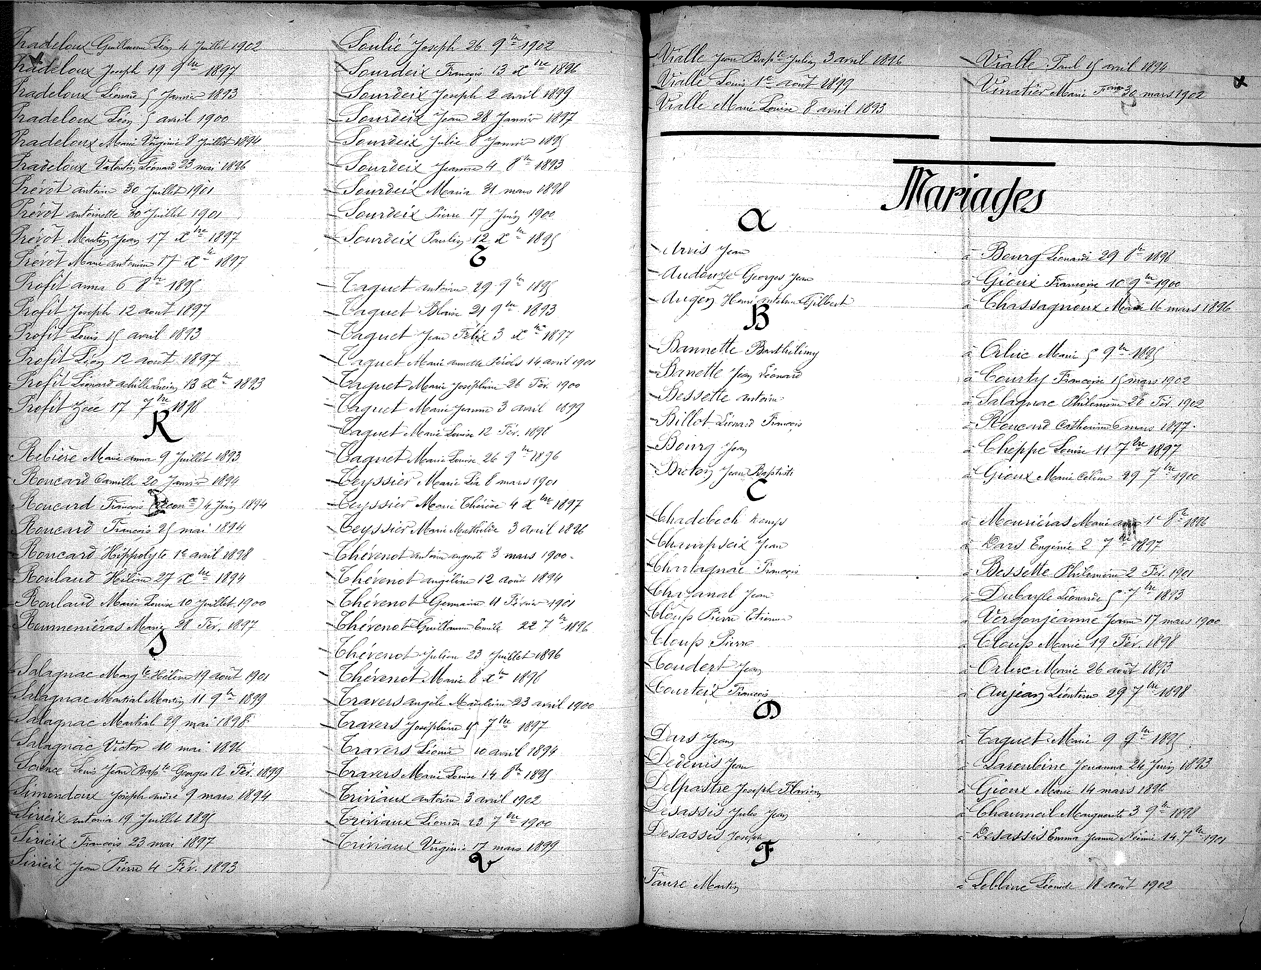 Pradeloux Guillaume Léon 4 Juillet 1902
Pradeloux Joseph 19 9bre 1897
Pradeloux Léonard 5 Janvier 1893
Pradeloux Léon 5 avril 1900
Pradeloux Marie Virginie 8 Juillet 1894
Pradeloux Valentin Léonard 23 mai 1896
Prévôt antoine 30 Juillet 1901
Prévôt antoinette 30 Juillet 1901
Prévôt Martin Jean 17 Xbre 1897
Prévôt Marie antonine 17 Xbre 1897
Profit anna 6 8bre 1895
Profit Joseph 12 août 1897
Profit Louis 15 avril 1893
Profit Léon 12 août 1897
Profit Léonard achille Lucien 13 Xbre 1893
Profit Zoée 17 7bre 1898
R
Rebière Marie anna 9 Juillet 1893
Roucard Camille 20 Janvier 1894
Roucard François 4 Juin 1894
Roucard François 25 mai 1894
Roucard Hippolyte 1er avril 1898
Roulaud Hélène 27 Xbre 1894
Roulaud Marie Louise 10 Juillet 1900
Roumeniéras Marie 28 Fév. 1897
S
Salagnac Margte Hélène 19 août 1901
Salagnac Martial Martin 11 9bre 1899
Salagnac Martial 29 mai 1898
Salagnac Victor 10 mai 1896
Louis Jean Bapte Georges 12 Fév. 1899
Simondoux Joseph andré 9 mars 1894
Sirieix antonia 19 Juillet 1895
Sirieix François 23 mai 1897
Sirieix Jean Pierre 4 Fév. 1893
Soulié Joseph 26 9bre 1902
Sourdeix François 13 Xbre 1896
Sourdeix Joseph 2 avril 1899
Sourdeix Jean 28 Janvier 1897
Sourdeix Julie 8 Janvier 1895
Sourdeix Jeanne 4 8bre 1893
Sourdeix Maria 31 mars 1898
Sourdeix Pierre 17 Juin 1900
Sourdeix Paulin 12 Xbre 1895
T
Taguet antoine 29 9bre 1895
Taguet Blaise 21 9bre 1893
Taguet Jean Félix 3 Xbre 1897
Taguet Marie annette 14 avril 1901
Taguet Marie Joséphine 26 Fév. 1900
Taguet Marie Jeanne 3 avril 1899
Taguet Marie Louise 12 Fév. 1898
Taguet Marie Louise 26 9bre 1896
Teyssier Marie Léa 8 mars 1901
Teyssier Marie Thérèse 4 Xbre 1897
Teyssier Marie Mathilde 3 avril 1896
Thévenot antoine auguste 3 mars 1900
Thévenot angéline 12 août 1894
Thévenot Germain 11 Février 1901
Thévenot Guillaume Emile 22 7bre 1896
Thévenot Julien 23 Juillet 1896
Thévenot Marie 8 Xbre 1898
Travers angèle 23 avril 1900
Travers Joséphine 15 7bre 1897
Travers Léonie 10 avril 1894
Travers Marie Louise 14 8bre 1895
Triviaux antoine 3 avril 1902
Triviaux Léonard 23 7bre 1900
Triviaux Virginie 17 mars 1899
V
Vialle Jean Bapte Julien 3 avril 1896
Vialle Louis 1er août 1899
Vialle Marie Louise 8 avril 1893
Vialle Paul 15 avril 1894
Vinatier Marie 30 mars 1902
Mariages
A
Arvis Jean à Bourg Léonarde 29 8bre 1898
Audouze Georges Jean à Gioux Françoise 10 9bre 1900
Augey Henri antoine Gilbert à Chassagnoux Marie 16 mars 1896
B
Bannette Barthélémy à Orluc Marie 5 9bre 1895
Banette Jean Léonard à Courty Françoise 15 mars 1902
Bessette antoine à Salagnac Philomène 28 Fév. 1902
Billot Léonard François à Roucard Catherine 6 mars 1897
Bourg Jean à Cheppe Louise 11 7bre 1897
Breton Jean Baptiste à Gioux Marie Célina 29 7bre 1900
C
Chadebech à Meuriéras Marie 1er 8bre 1896
Champseix Jean à Dars Eugénie 2 7bre 1897
Chartagnac François à Bessette Philomène 2 Fév. 1901
Chazanal Jean à Dubayle Léonarde 5 7bre 1893
Cloup Pierre Etienne à Vergonjeanne Jeanne 17 mars 1900
Cloup Pierre à Cloup Marie 19 Fév. 1898
Coudert Jean à Orluc Marie 26 août 1893
Courteix François à Anjean Léontine 29 7bre 1898
D
Dars Jean à Taguet Marie 9 9bre 1895
Dedenis Jean à Jouanna 24 Juin 1893
Delpastre Joseph Flavien à Gioux Marie 14 mars 1896
Desassis Jules Jean à Chaumeil Marguerite 3 9bre 1898
Desassis Joseph à Desassis Emma Jeanne Noémie 14 7bre 1901
F
Faure Martin à Leblanc Léonide 18 août 1902